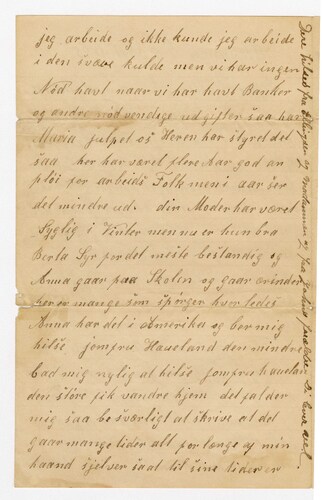 jeg arbeide og ikke kunde jeg arbeide
i den svære kulde men vi har ingen
Nød havt naar vi har havt Banker
og andre nødvendige udgifter saa har
Maria julpet os Heren har styret det
saa her har været flere har god ar
plöi for arbeids Folk men i aar ser
det mindre ud. din Moder har været
Syglig i Vinter men nu er hun bra
Berta Syr for det meste bestandig og
Anna gaar paa Skolen og gaar ærinder
her er mange som spörger hvorledes
Anna har det i Amerika og ber mig
hilse jomfru Haveland den mindre
bad mig nylig at hilse jomfru havelan
den störe fik vandre hjem det falder
mig saa besværligt at skrive at det
gaar mange tider alt for længe af min
haand sjelver saa at til sine tider er
Dere hilsed fra
og fra
lever vel